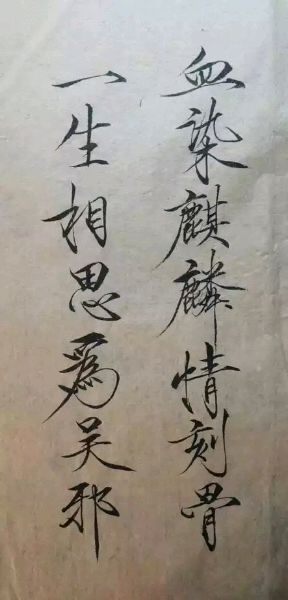 血染麒麟情刻骨
一生相思為吴邪